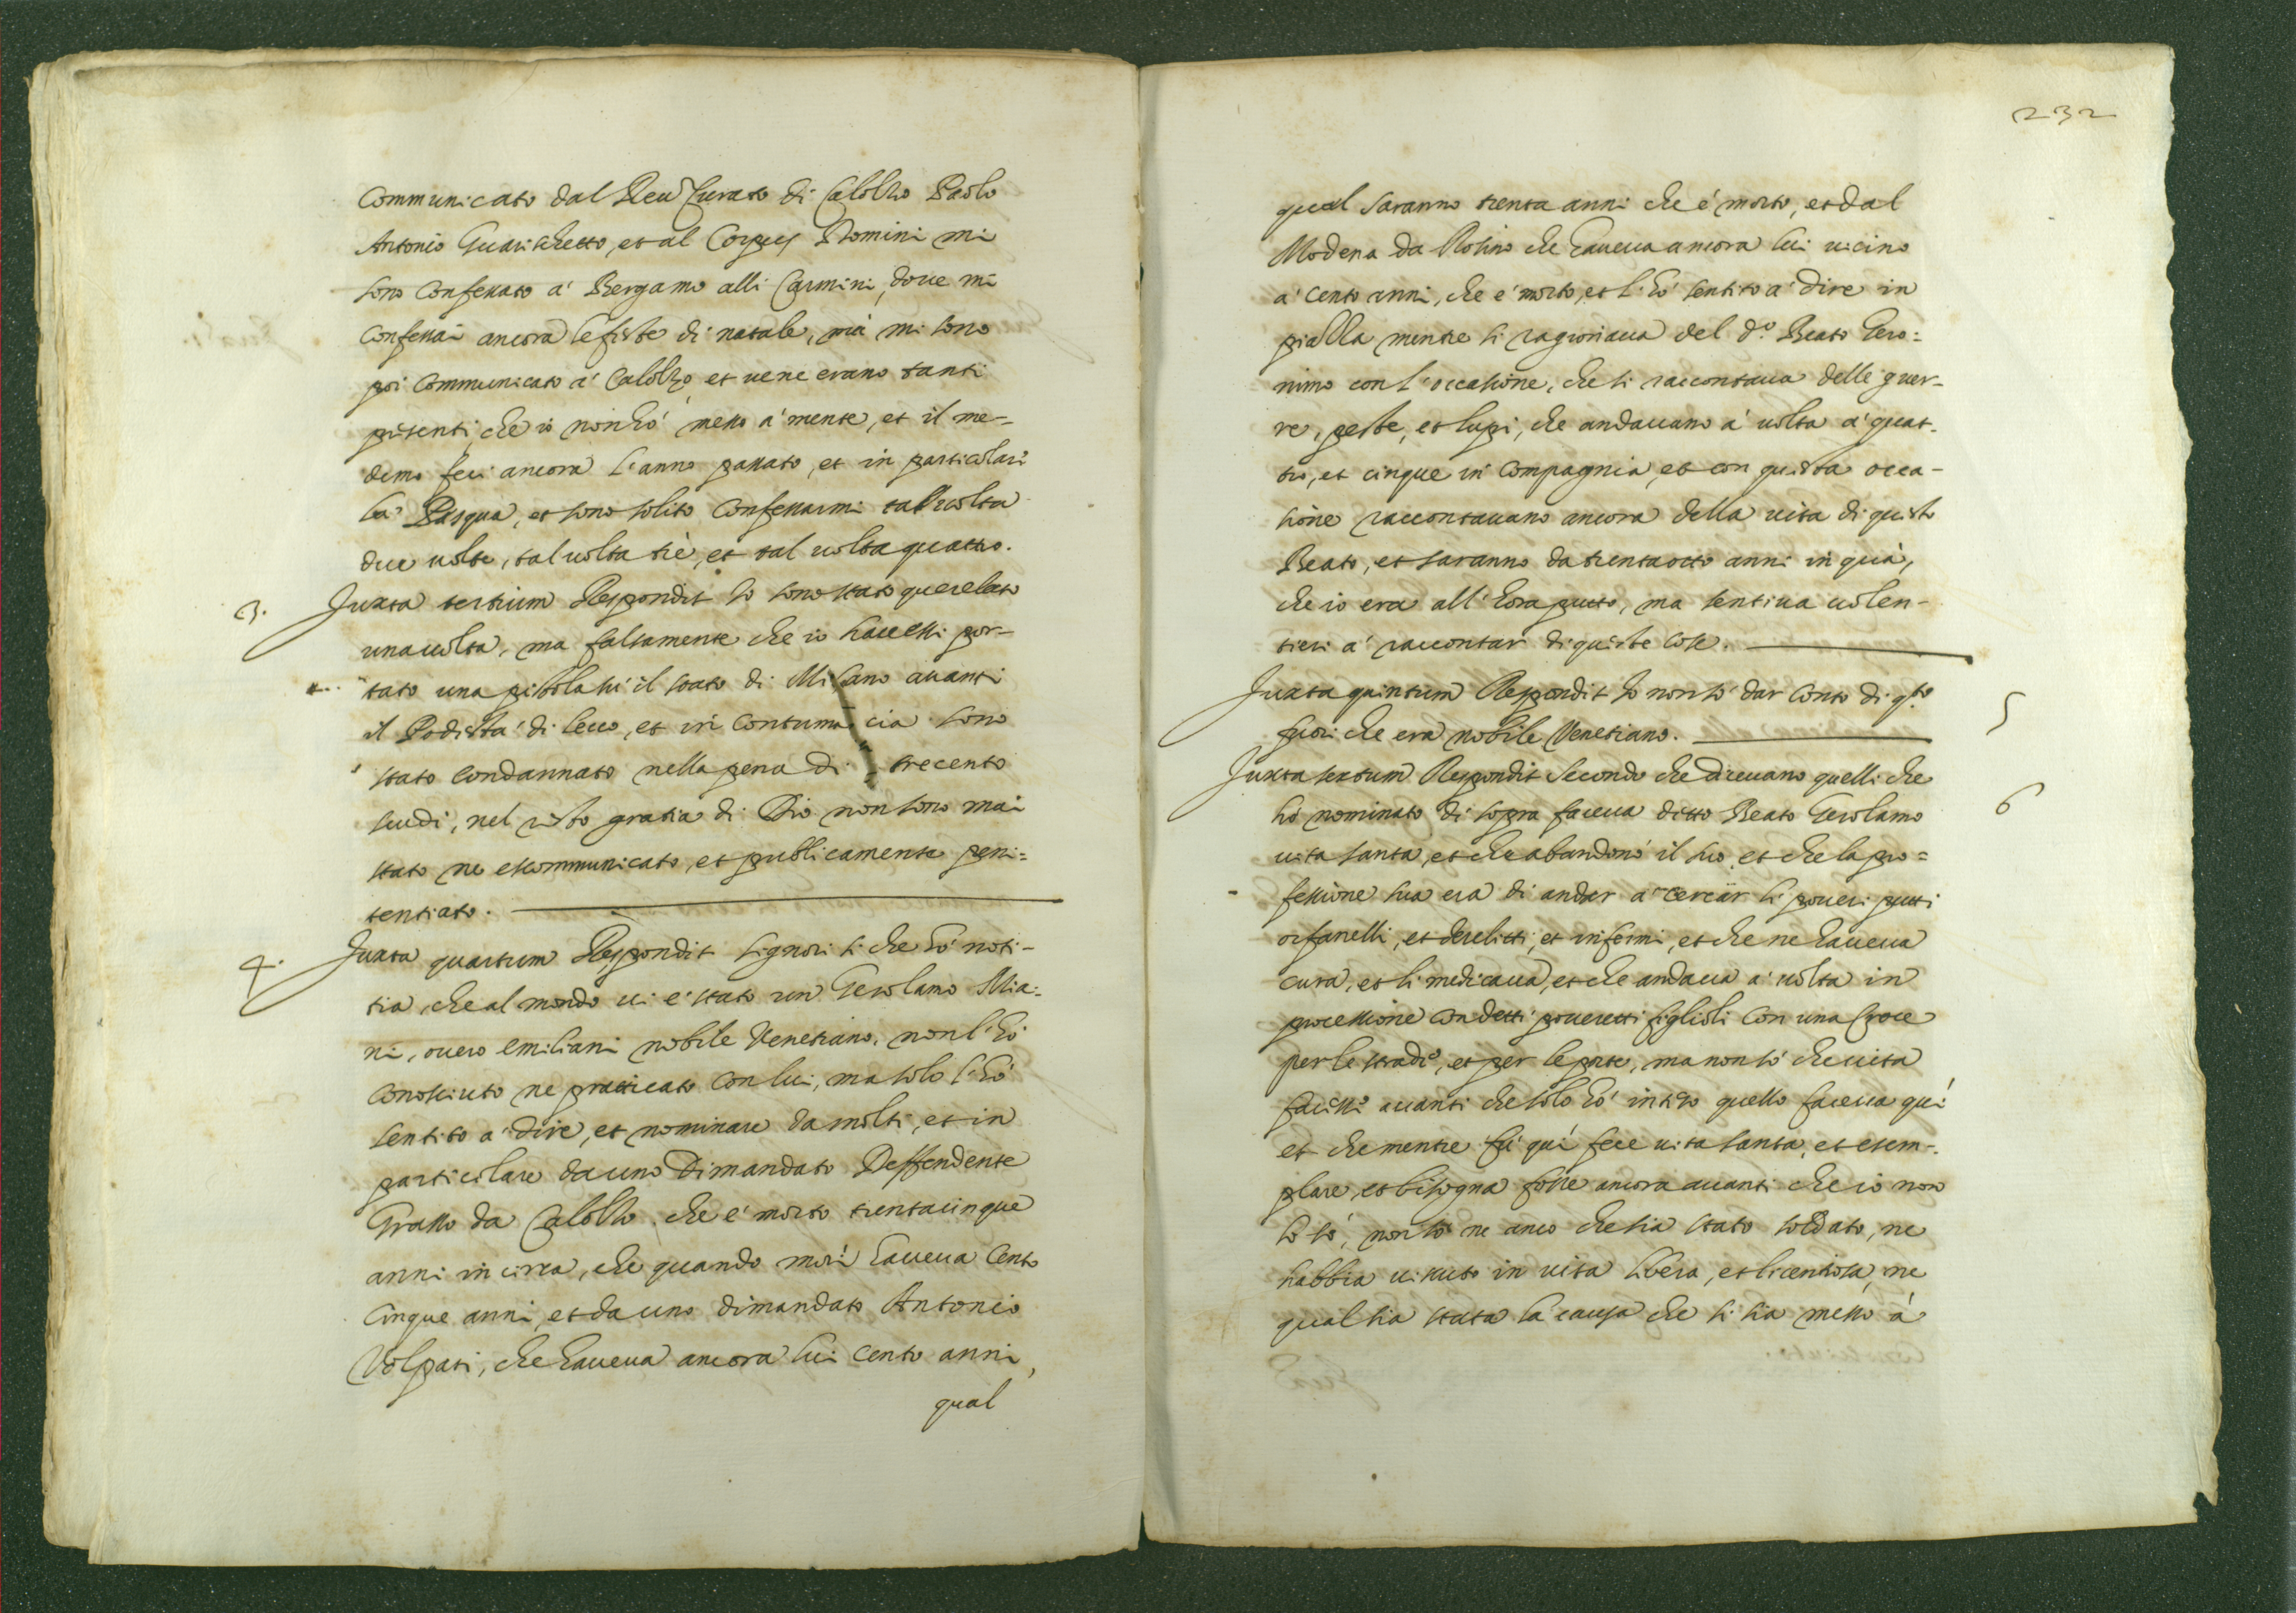 Communicato dal Reu Curato di Calolzo Paolo
Antonio Guarischetto, et al Corpus Domini mi
sono Confessato à Bergamo alli Carmini, doue mi
Confessai ancora le feste di natale, mà mi sono
poi Communicato à Calolzo et uene erano tanti
presenti che io non hò messo à mente, et il me-
demo feci ancora l'anno passato, et in particolare
la Pasqua, et sono solito Confessarmi tal uolta
due uolte, tal uolta trè, et tal uolta quattro.
3. Juxta tertium Respondit Io sono stato querelato
una uolta, ma falsamente che io hauessi por-
tato una pistola sù il stato di Milano auanti
il Podestà di lecco, et in Contumacia sono
stato Condannato nella pena di trecento
scudi, nel resto gratia di Dio non sono mai
stato ne escommunicato, et publicamente peni=
tentiato.
4. Juxta quartum Respondit Signori si che hò noti-
tia, che al mondo ui è stato un Gerolamo Mia=
ni, ouero emiliani nobile Venetiano, non l'hò
Conosciuto ne praticato con lui, ma solo l'hò
sentito à dire, et nominare da molti, et in
particolare da uno Dimandato Deffendente
Grasso da Calolzo che è morto trentacinque
anni in circa, che quando morì haueua Cento
Cinque anni, et da uno dimandato Antonio
Volpati, che haueua ancora lui Cento anni,
qual
232
qual saranno trenta anni che è morto, et dal
Modena da Rosino che haueua ancora lui uicino
à Cento anni, che è morto, et l'hò sentito à dire in
piazza mentre si ragionaua del d.o Beato Gero=
nimo con l'occasione, che si raccontaua delle guer-
re, peste, et lupi, che andauano à uolta à quat-
tro, et cinque in Compagnia, et con questa occa-
sione raccontauano ancora della uita di questo
Beato, et saranno da trentaotto anni in quà,
che io era all'hora putto, ma sentiua uolen-
tieri à raccontar di queste Cose.
Juxta quintum Respondit Io non sò dar Conto di q.to 5
fuori che era nobile Venetiano.
Juxta sextum Respondit Secondo che diceuano quelli che
hò nominato di sopra faceua ditto Beato Gerolamo 6
uita santa, et che abandonò il suo et che la pro=
fessione sua era di andar à cercar li poueri putti
orfanelli, et derelitti, et infermi, et che ne haueua
cura, et li medicaua, et che andaua à uolta in
processione Con detti poueretti figlioli Con una Croce
per le strade, et per le porte, ma non sò che uita
facesse auanti che solo hò inteso quello faceua quì
et che mentre fù quì fece uita santa, et esem-
plare, et bisogna fosse ancora auanti che io non
lo sò, non sò ne anco che sia stato soldato, ne
habbia uissuto in uita libera, et licentiosa, ne
qual sia stata la causa che si sia messo à